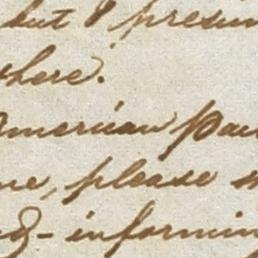 but I presum
there.
American Pa
me, please
informin